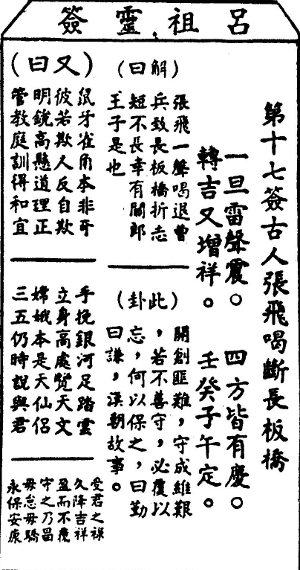 呂祖靈簽
第十七簽古人張飛喝斷長板橋
一旦雷聲震。 四方皆有慶。
轉吉又增祥。 壬癸子午定。
(解曰)
張飛一聲喝退曹
兵致長板橋折志
短不長幸有關郎
王子是也
(此卦)
開創匪難,守成維艱
,若不善守,必覆以
忘,何以保之,曰勤
曰謙,漢朝故事。
(又曰)
鼠牙雀角本非
彼若欺人反自欺
明鏡高懸道理正
管教庭訓得和宜
手挽銀河足踏雲
立身高處覽天文
嫦娥本是天仙侶
三五仍時說與君
受君之祿
久降吉祥
盈而不覆
守之乃昌
毋怠毋驕
永保安康